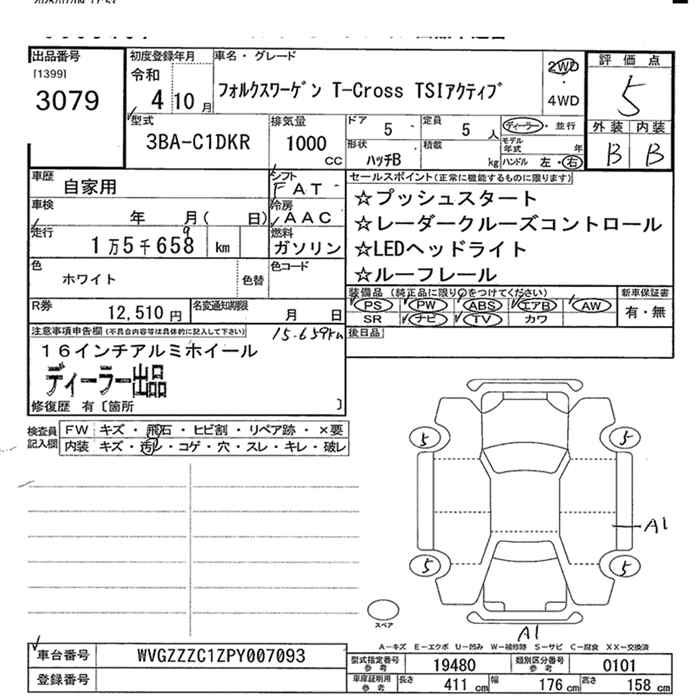 出品番号
[1399]
3079
初度登録年月
令和
4 10 月
車名・グレード
フォルクスワーゲン T-Cross TSIアクティブ
2WD
・
4WD
評価点
5
外装 内装
B B
型式
3BA-C1DKR
排気量
1000
CC
ドア 5
定員 5 人
ディーラー・並行
形状
ハッチB
積載 kg
モデル年式 年
ハンドル 左・右
車歴
自家用
シフト
FAT
セールスポイント(正常に機能するものに限ります)
☆プッシュスタート
☆レーダークルーズコントロール
☆LEDヘッドライト
☆ルーフレール
車検
年 月( 日)
冷房
AAC
走行
1万5千658 km
9
燃料
ガソリン
色
ホワイト
色替
色コード
装備品(純正品に限り○をつけてください)
PS PW ABS エアB AW
SR ナビ TV カワ
新車保証書
有・無
R券
12,510円
名変通知期限
月 日
後日品
注意事項申告欄(不具合内容等は具体的に記入して下さい)
15.659km
16インチアルミホイール
ディーラー出品
修復歴 有〔箇所 〕
検査員記入欄
FW キズ・飛石・ヒビ割・リペア跡・×要
内装 キズ・汚レ・コゲ・穴・スレ・キレ・破レ
5 5
A1
5 5
スペア
A1
A-キズ E-エクボ U-凹み W-補修跡 S-サビ C-腐食 XX-交換済
車台番号
WVGZZZC1ZPY007093
型式指定番号
参考
19480
類別区分番号
参考
0101
登録番号
車庫証明用
参考
長さ 411 cm
幅 176 cm
高さ 158 cm